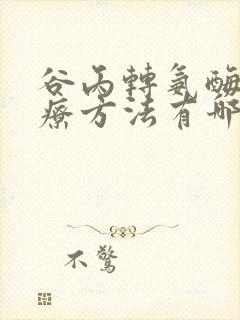 谷丙轉氨酶
療方法有哪
不驚